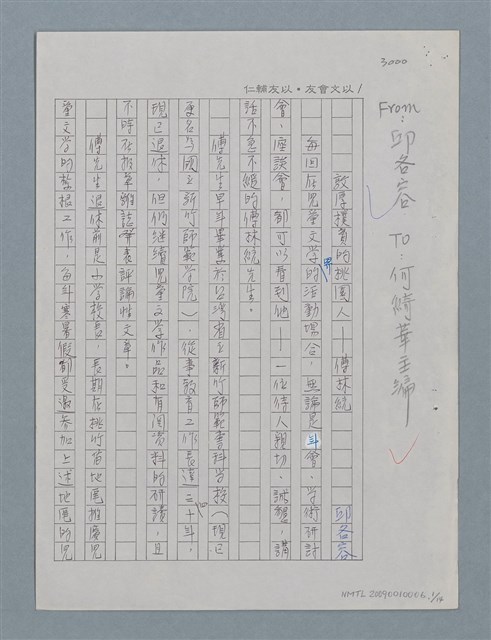 3000
From：邱各容 TO：何綺華主編
仁輔友以・友會文以
敦厚樸實的桃園人——傅林統
邱各容
每回在兒童文學界的活動場合，無論是年會、學術研討
會、座談會，都可以看到他——一位待人親切、誠懇，講
話不急不緩的傅林統先生。
傅先生早年畢業於台灣省立新竹師範專科學校（現已
更名為國立新竹師範學院），從事教育工作長達四十年，
現已退休，但仍繼續兒童文學作品和有關資料的研讀，且
不時在報章雜誌發表評論性文章。
傅先生退休前是小學校長，長期在桃竹苗地區推廣兒
童文學的紮根工作，每年寒暑假都受邀參加上述地區的兒
NMTL 20090010006-1/14